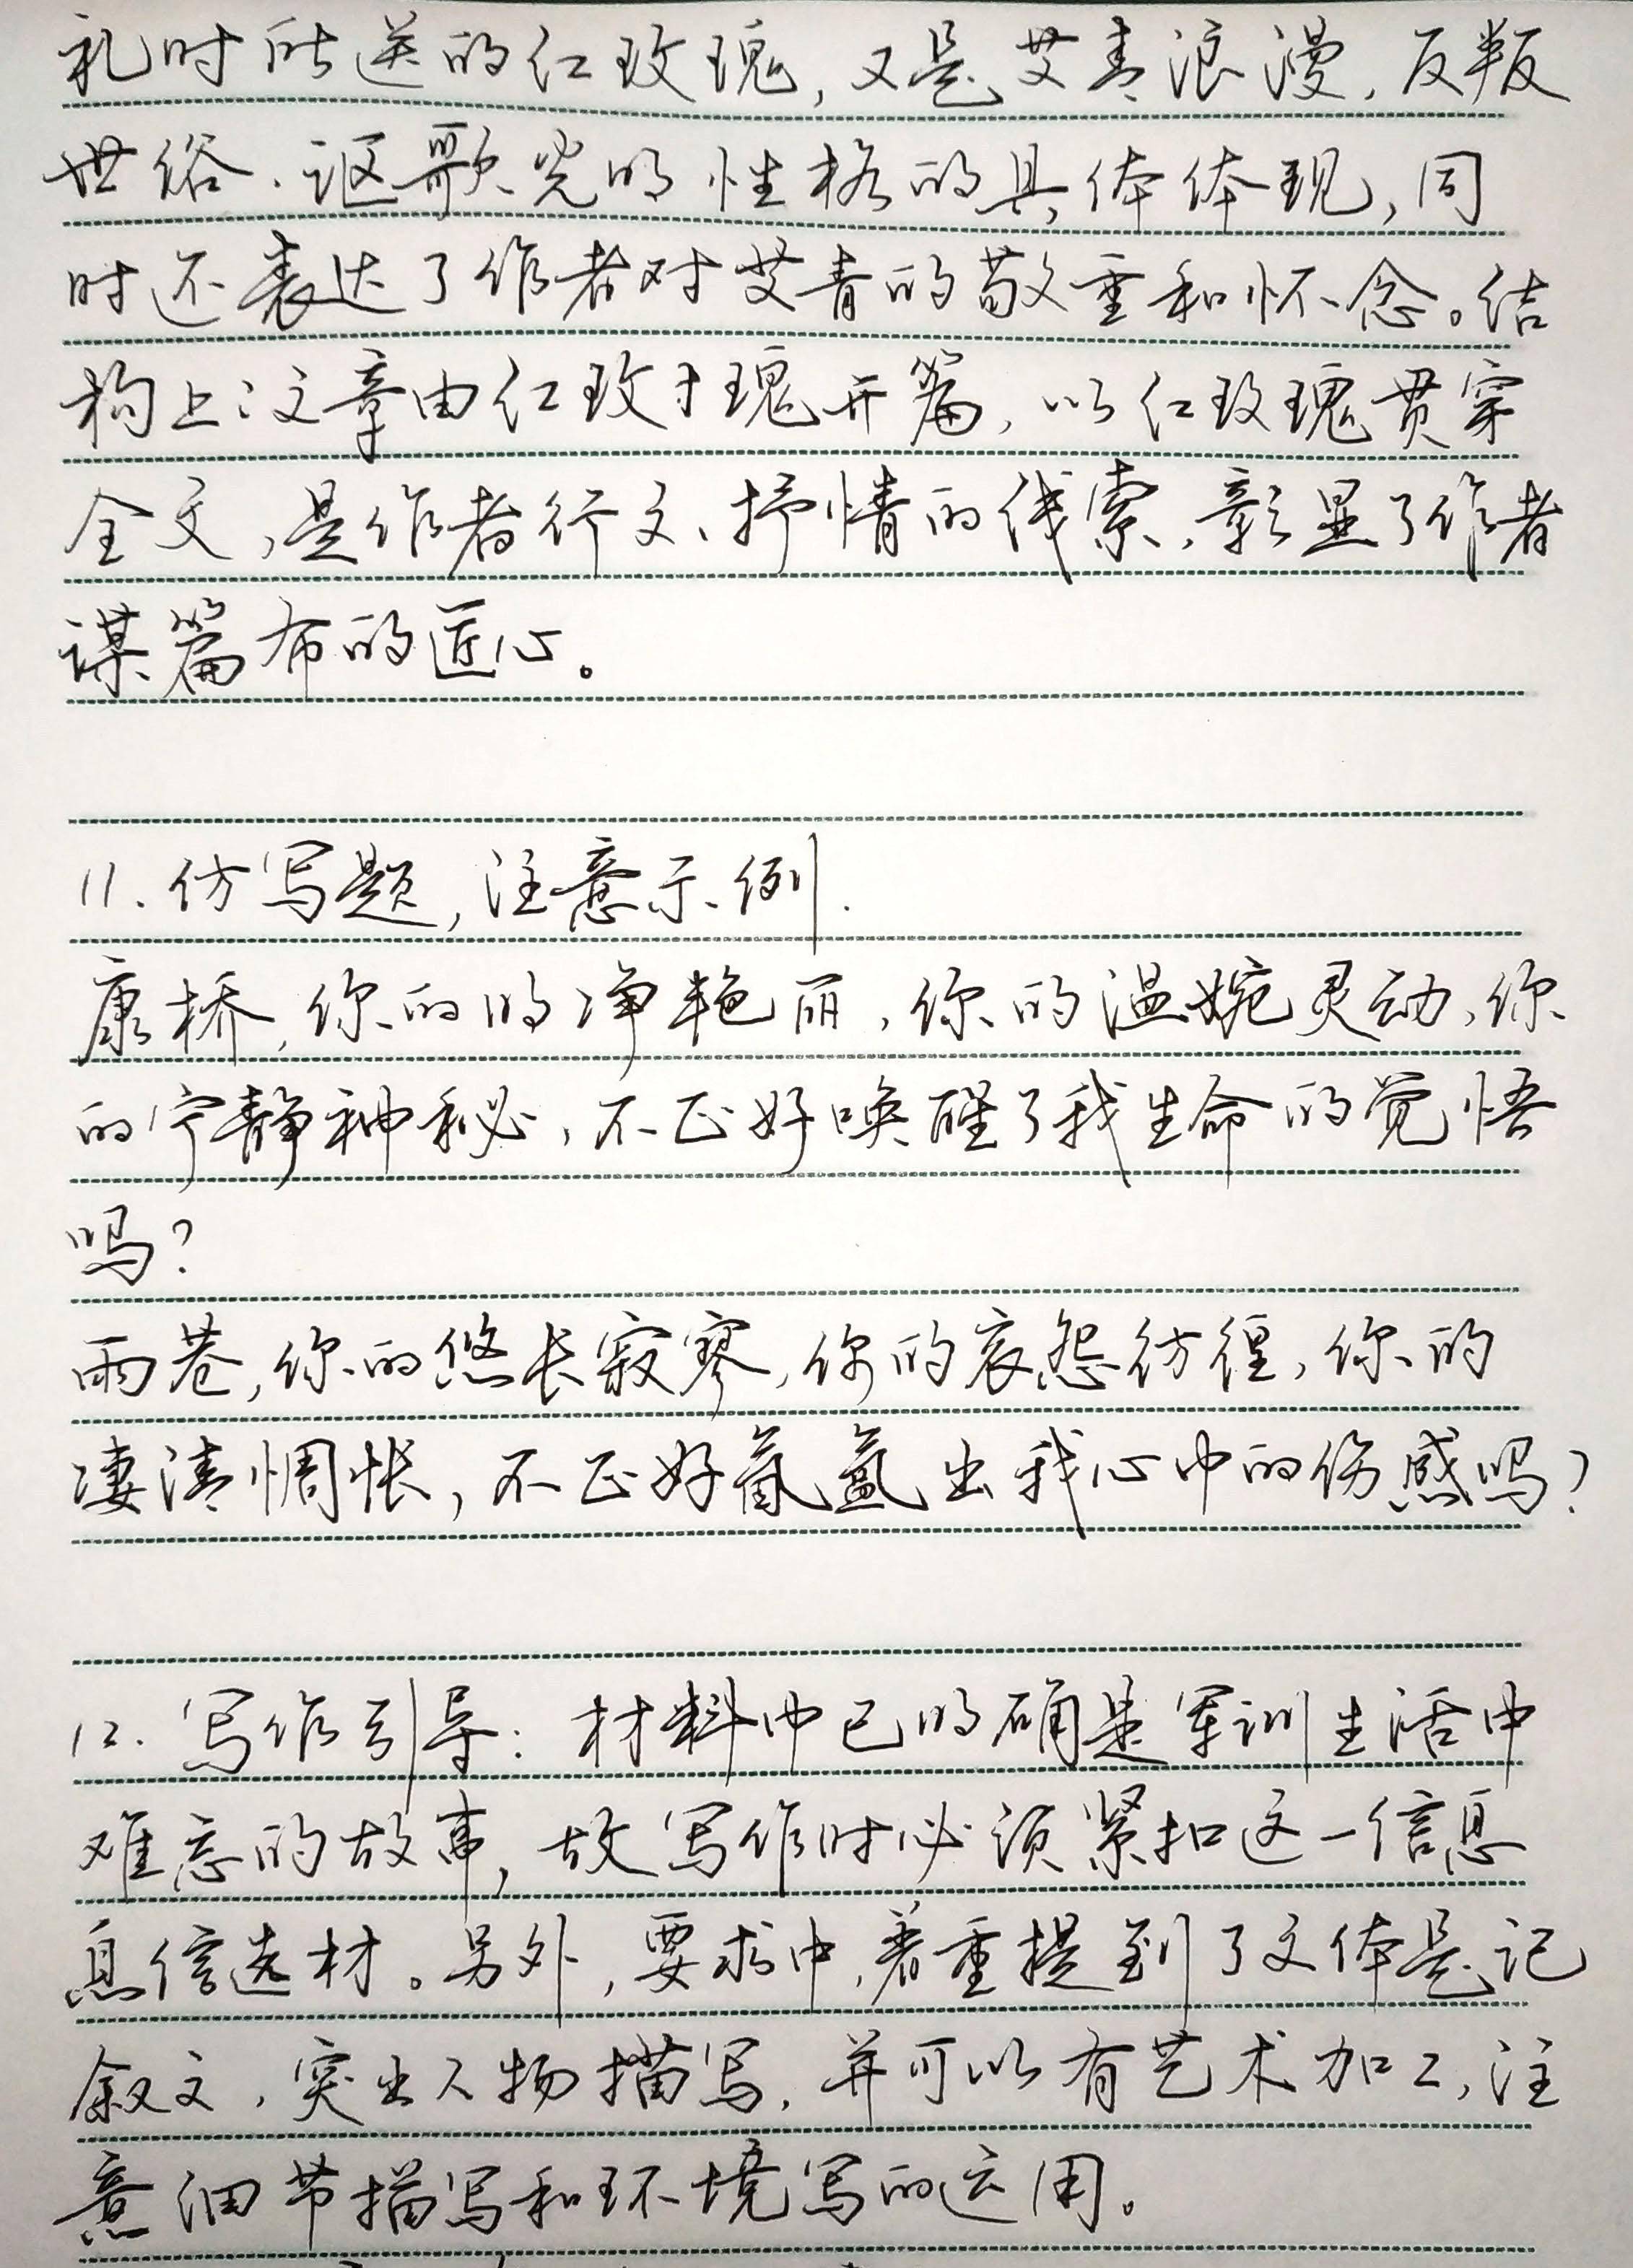 礼时所送的红玫瑰,又是艾青浪漫,反叛
世俗.讴歌光明性格的具体体现,同
时还表达了作者对艾青的敬重和怀念。结
构上:文章由红玫瑰开篇,以红玫瑰贯穿
全文,是作者行文、抒情的线索,彰显了作者
谋篇布的匠心。
11.仿写题,注意示例.
康桥,你的明净艳丽,你的温婉灵动,你
的宁静神秘,不正好唤醒了我生命的觉悟
吗?
雨巷,你的悠长寂寥,你的哀怨彷徨,你的
凄清惆怅,不正好氤氲出我心中的伤感吗?
12.写作引导:材料中已明确是军训生活中
难忘的故事,故写作时必须紧扣这一信息
息信选材。另外,要求中,着重提到了文体是记
叙文,突出人物描写,并可以有艺术加工,注
意细节描写和环境写的运用。